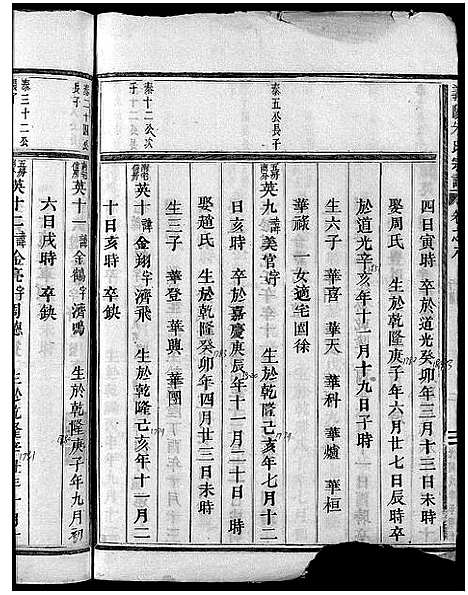 四日寅時 卒於道光癸卯年三月十三日未時
1843
娶周氏 生於乾隆庚子年六月廿七日辰時卒
1780
於道光辛亥年十二月十九日子時
生六子 華喜 華天 華科 華爐 華桓
華祿 一女適宅園徐
泰五公長子
英九諱美官字 生於乾隆己亥年七月十二
1779
日亥時 卒於嘉慶庚辰年十一月二十日
1820
娶趙氏 生於乾隆癸卯年四月廿三日未時
1783
生三子 華登 華興 華團
泰十二公次子
英十諱金翔字濟飛 生於乾隆己亥年十一月二
1779
十日亥時 卒缺
泰二十四公長子
英十一諱金鶴字濟鳴 生於乾隆庚子年九月初
1780
六日戌時 卒缺
泰三十二公
英十二諱金亮字周德 生於乾隆
1781